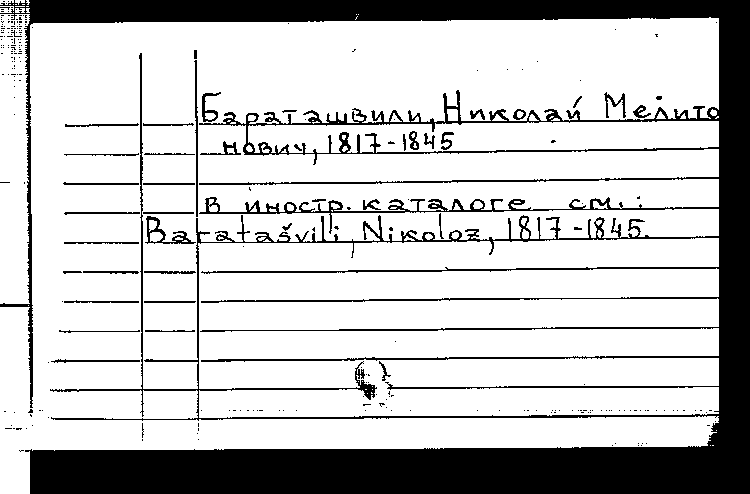 Бараташвили, Николай Мелито
нович, 1817-1845
в иностр. каталоге см.:
Baratašvili, Nikoloz, 1817-1845.